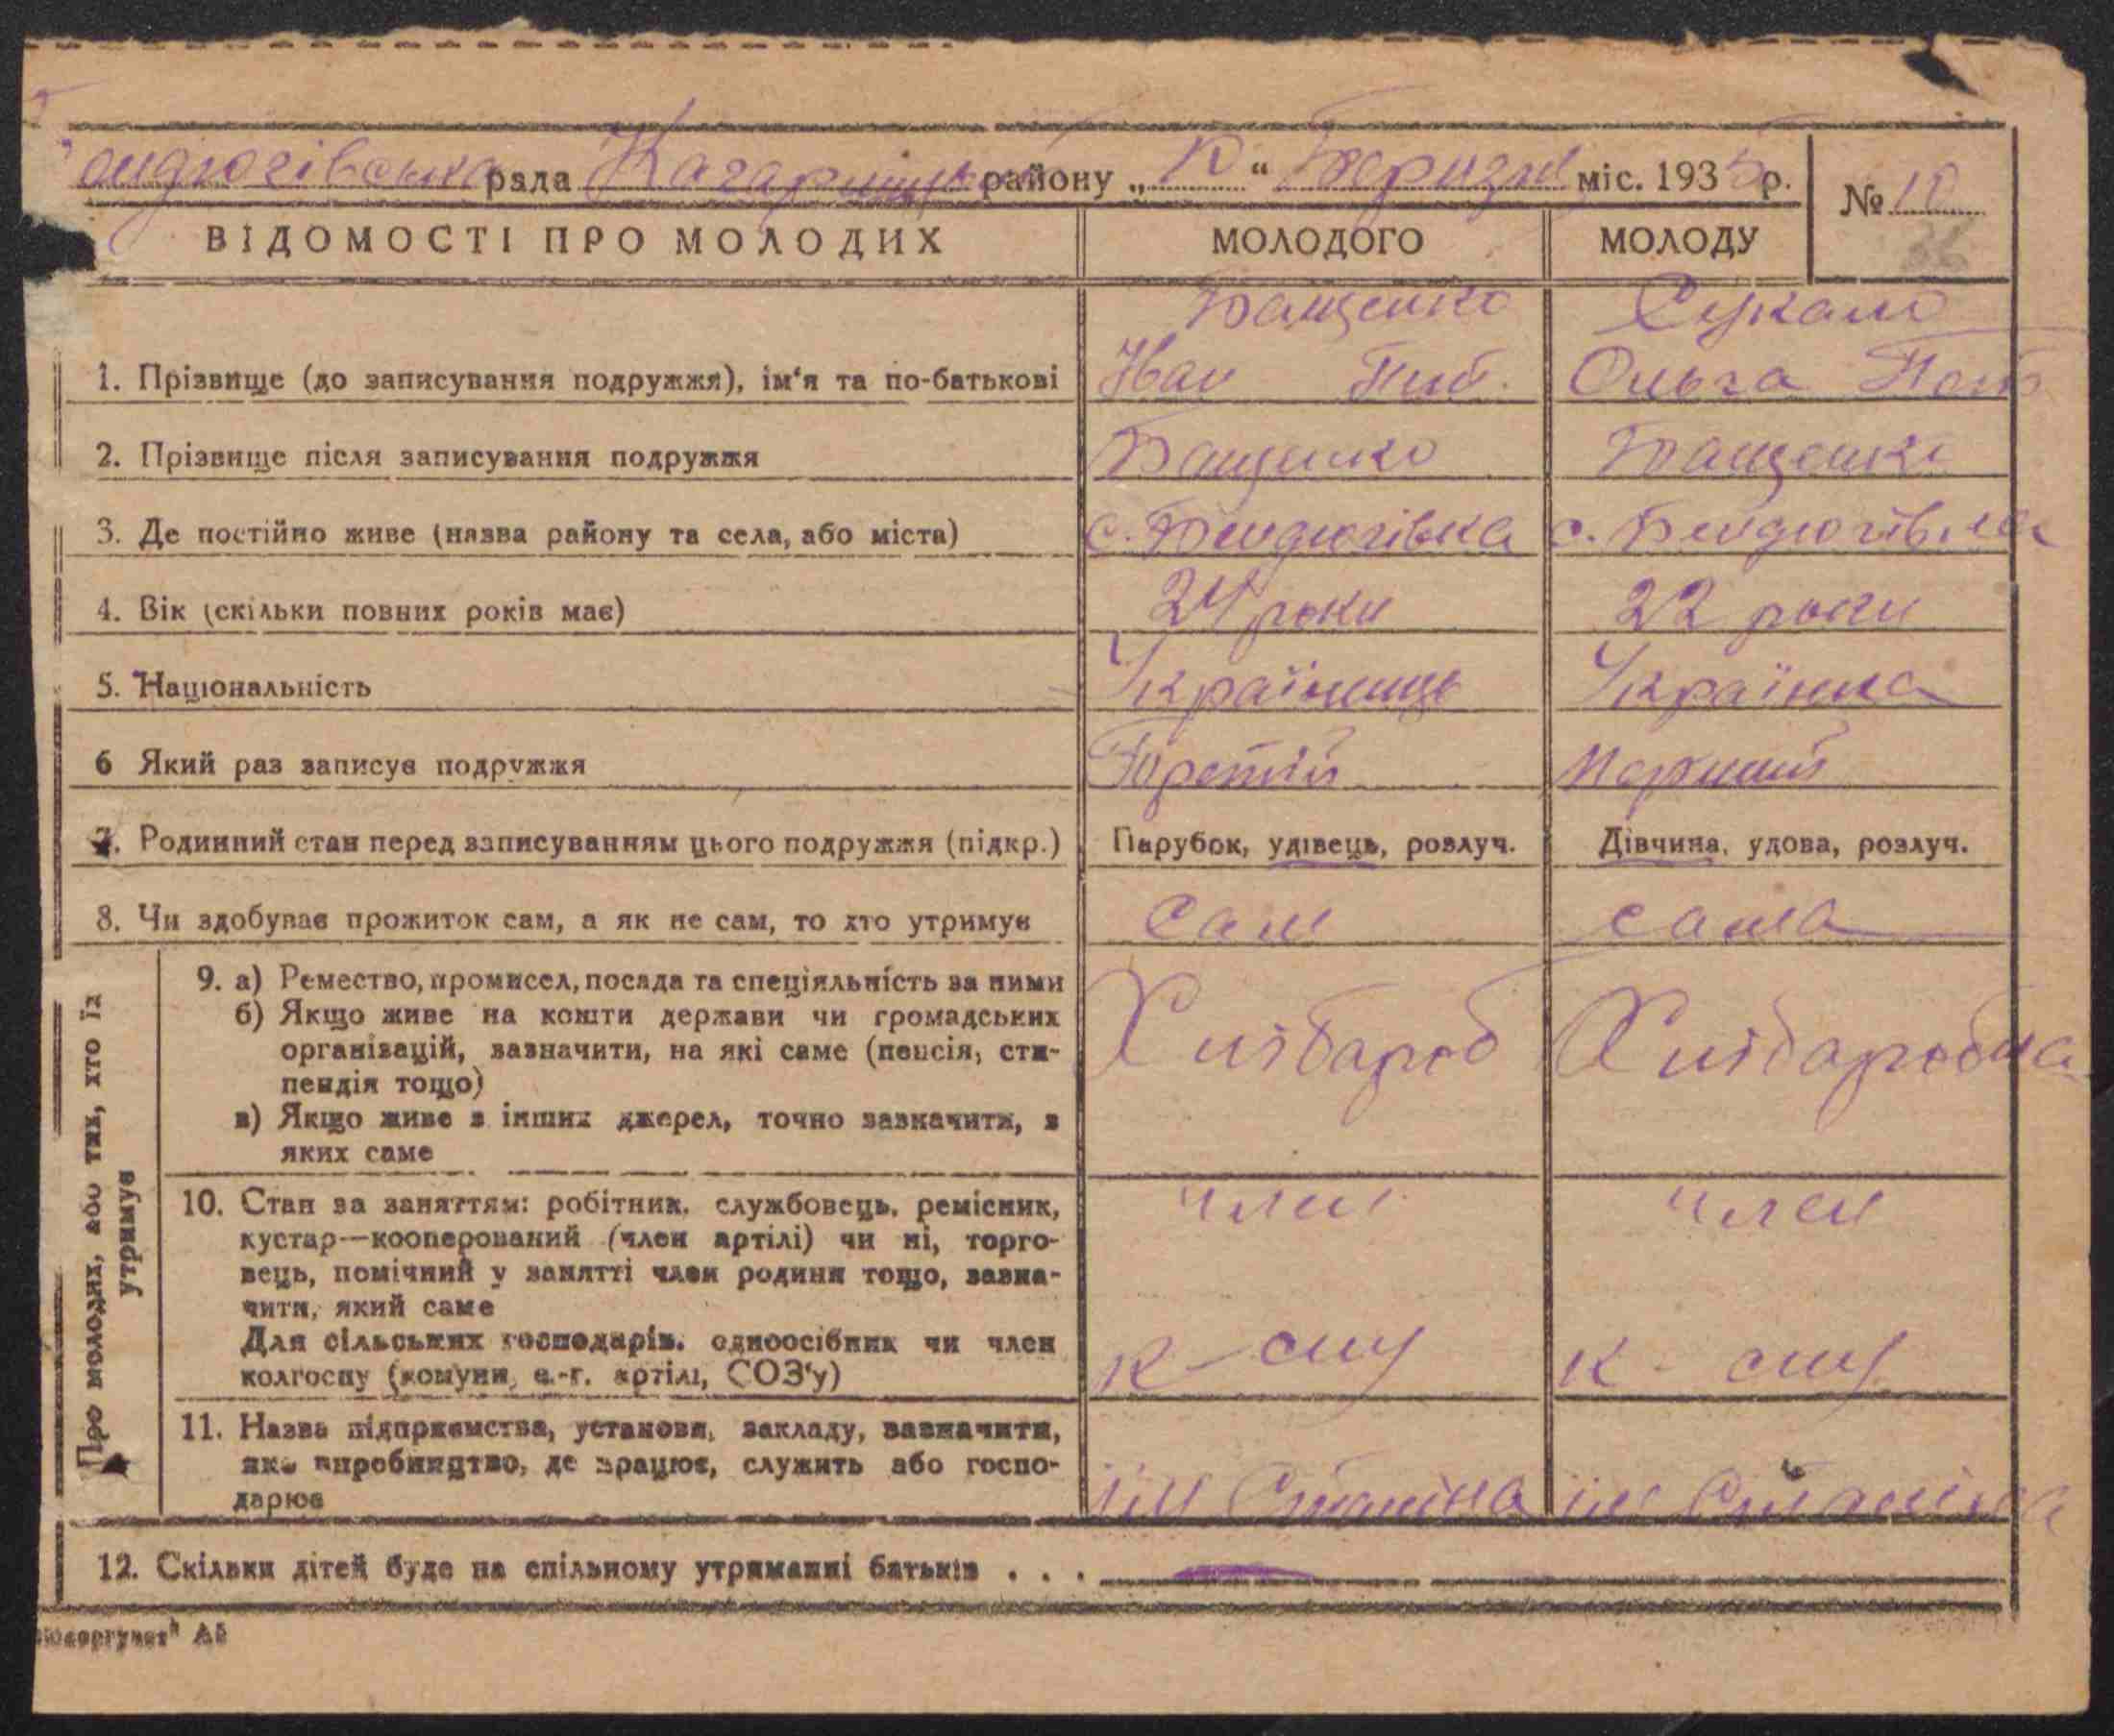 ендюгівська рада Кагарлицьк району „10“ Березня міс. 1935 р.
№ 10
36
ВІДОМОСТІ ПРО МОЛОДИХ МОЛОДОГО МОЛОДУ
Бащенко Сукало
1. Прізвище (до записування подружжя), ім'я та по-батькові Іван Ольга
2. Прізвище після записування подружжя Бащенко Бащенко
3. Де постійно живе (назва району та села, або міста) с. Бендюгівка с. Бендюгівка
4. Вік (скільки повних років має) 24 роки 22 роки
5. Національність Українець Українка
6 Який раз записує подружжя Третій Перший
7. Родинний стан перед записуванням цього подружжя (підкр.) Парубок, удівець, розлуч. Дівчина, удова, розлуч.
8. Чи здобуває прожиток сам, а як не сам, то хто утримує Сам сама
Про молодих, або тих, хто їх
утримує
9. а) Ремество, промисел, посада та спеціяльність за ними
б) Якщо живе на кошти держави чи громадських
організацій, зазначити, на які саме (пенсія, сти-
пендія тощо) Хлібароб Хлібаробка
в) Якщо живе з інших джерел, точно зазначити, з
яких саме
10. Стан за заняттям: робітник, службовець, ремісник, член член
кустар—кооперований (член артілі) чи ні, торго-
вець, помічний у занятті член родини тощо, зазна-
чити, який саме
Для сільських господарів, одноосібник чи член
колгоспу (комуни, с.-г. артілі, СОЗ'у) к-спу к-спу
11. Назва підприємства, установи, закладу, зазначити,
яке виробництво, де працює, служить або госпо-
дарює ім Сталіна ім Сталіна
12. Скільки дітей буде на спільному утриманні батьків . . . —